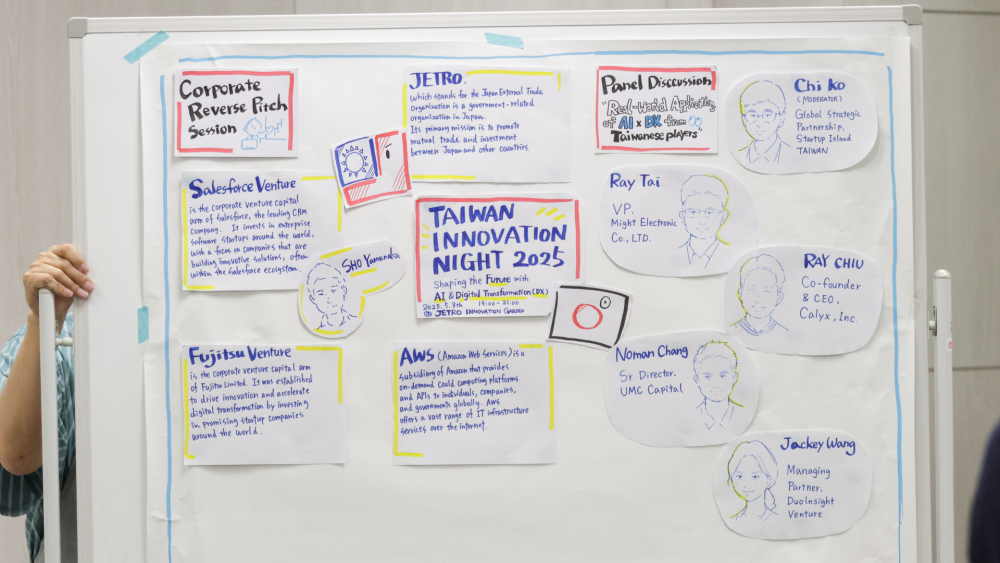 Corporate
Reverse Pitch
Session
Salesforce Venture
is the corporate venture capital
arm of Salesforce, the leading CRM
company. It invests in enterprise
software startups around the world,
with a focus on companies that are
building innovative solutions, often
within the Salesforce ecosystem.
SHO Yamanaka
Fujitsu Venture
is the corporate venture capital arm
of Fujitsu Limited. It was established
to drive innovation and accelerate
digital transformation by investing
in promising startup companies
around the world.
JETRO.
which stands for the Japan External Trade
Organization is a government-related
organization in Japan.
Its primary mission is to promote
mutual trade and investment
between Japan and other countries.
TAIWAN
INNOVATION
NIGHT 2025
Shaping the Future with
AI & Digital Transformation (DX)
2025. 5. 8th 19:00-21:00
@ JETRO INNOVATION GARDEN
AWS (Amazon Web Services) is a
subsidiary of Amazon that provides
on-demand Could computing platforms
and APIs to individuals, companies,
and governments globally. AWS
offers a vast range of IT infrastructure
services over the internet.
Panel Discussion
"Real-World Application
of AI x DX from
Taiwanese players"
Chi Ko
(MODERATOR)
Global Strategic
Partnership,
Startup Island
TAIWAN
Ray Tai
VP,
Might Electronic
Co., LTD.
RAY CHIU
Co-founder
& CEO,
Calyx, Inc.
Noman Chang
Sr Director.
UMC Capital
Jackey Wang
Managing
Partner,
DuoInsight
Venture